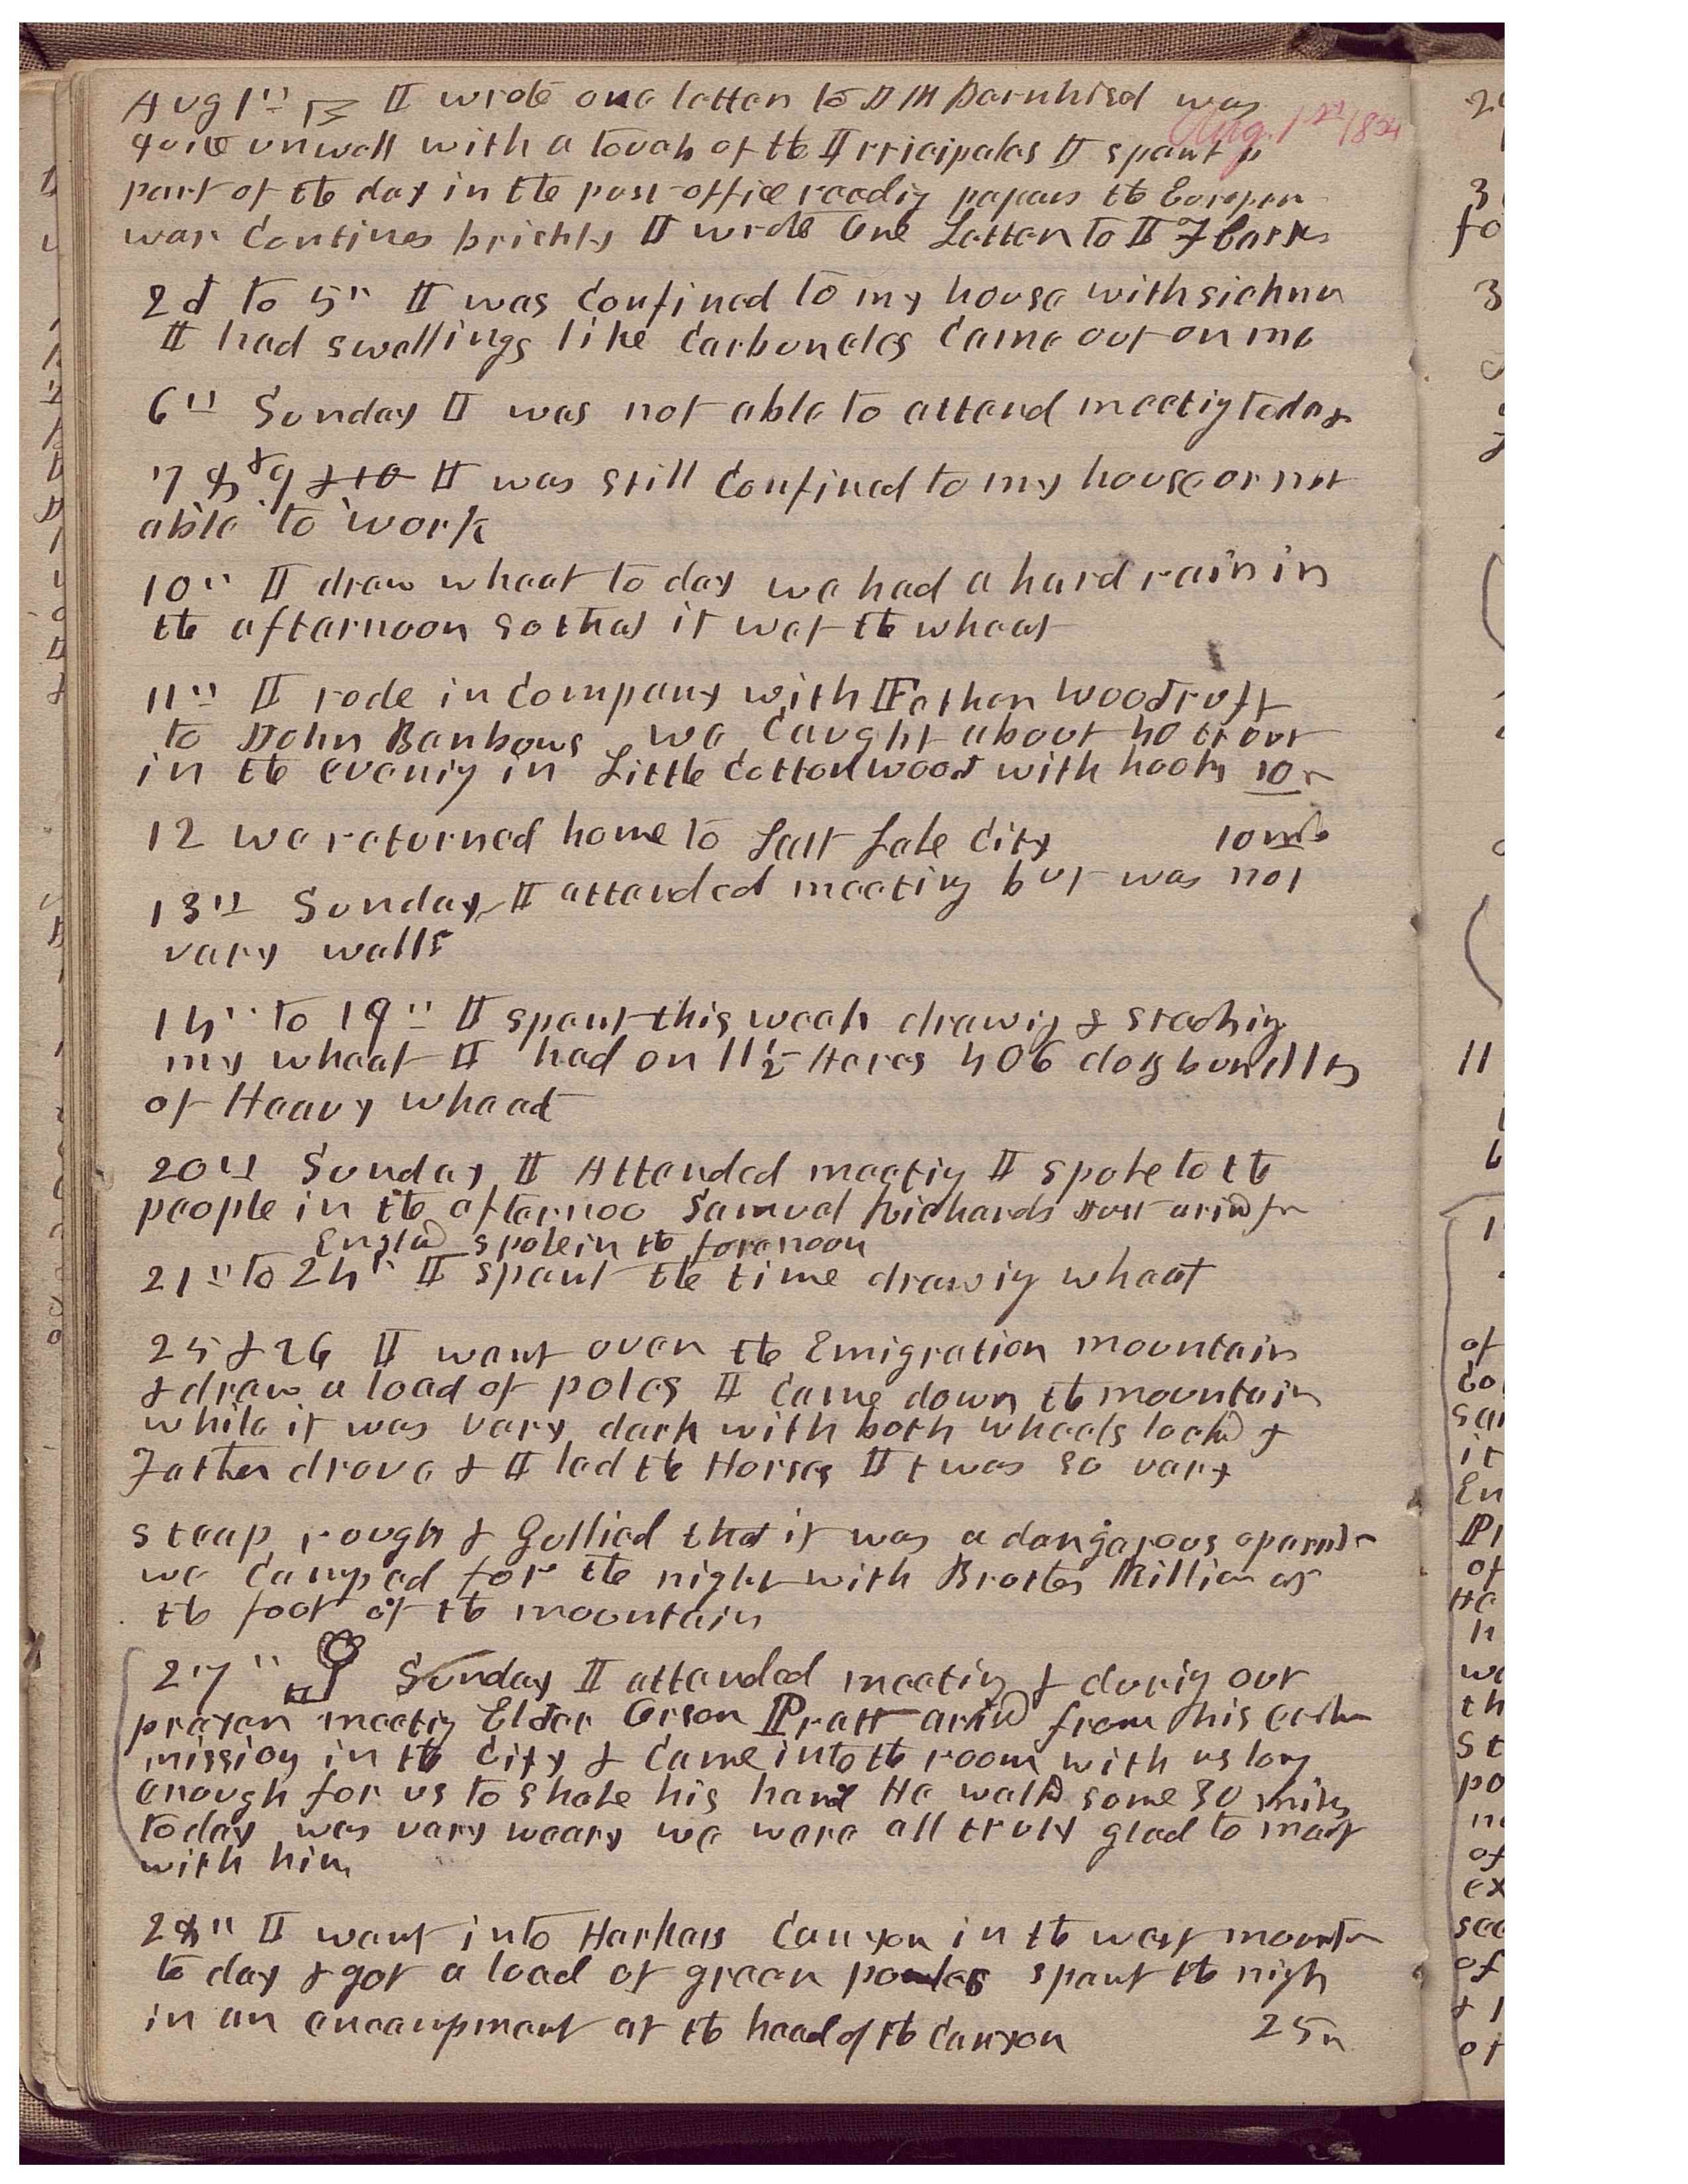 Aug 1" I wrote one letter to D M Barnhisel was
Aug. 1st 1854
quite unwell with a touch of the Irricipales I spent a
part of the day in the post office readig papers the Europen
war Continues briskly I wrote One Letter to I F Carter
2d to 5" I was Confined to my house with sickness
I had swellings like Carbuncles Came out on me
6" Sunday I was not able to attend meetig today
7 8 & 9 & 10 I was still Confined to my house or not
able to work
10" I drew wheat to day we had a hard rain in
the afternoon so that it wet the wheat
11" I rode in Company with Father Woodruff
to John Benbows we Caught about 40 trout
in the evenig in Little Cottonwood with hooks 10 m
12 we returned home to Salt Lake City 10 mils
13" Sunday I attended meeting but was not
very well
14" to 19" I spent this week drawig & stackig
my wheat I had on 11½ Acres 406 doz bundles
of Heavy wheat
20" Sunday I Attended meetig I spoke to the
people in the afternoo Samuel Richards just arivd from
Englad spoke in the forenoon
21" to 24" I spent the time drawig wheat
25 & 26 I went over the Emigration mountain
& drew a load of poles I Came down the mountain
while it was very dark with both wheels lockd &
Father drove & I led the Horses It was so very
steep, rough & Gullied that it was a dangerous operation
we Camped for the night with Brother Killian at
the foot of the mountain
27" Sunday I attended meetig & durig our
prayer meetig Elder Orson Pratt arivd from his eastern
mission in the City & Came into the room with us long
enough for us to shake his hand He walkd some 30 miles
today was very weary we were all truly glad to meet
with him
28" I went into Harkers Canyon in the west mountain
to day & got a load of green poles spent the nigh
in an encampment at the head of the Canyon 25 m